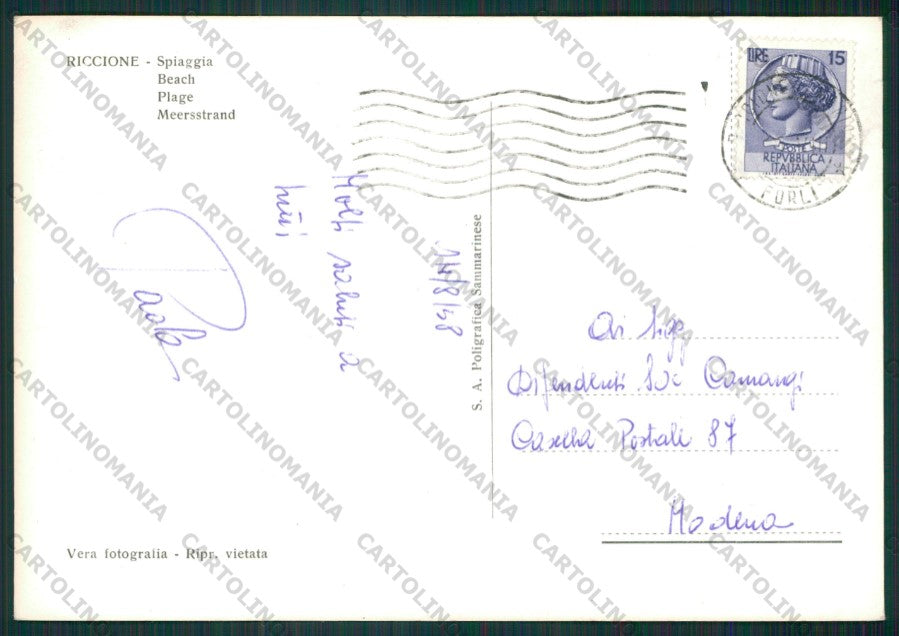 RICCIONE - Spiaggia
Beach
Plage
Meersstrand
LIRE 15
POSTE
REPVBBLICA
ITALIANA
FORLI
14/8/58
Molti saluti a
tutti
Paola
S. A. Poligrafica Sammarinese
Ai Sigg.
Dipendenti Camangi
Casella Postale 87
Modena
Vera fotografia - Ripr. vietata
CARTOLINOMANIA